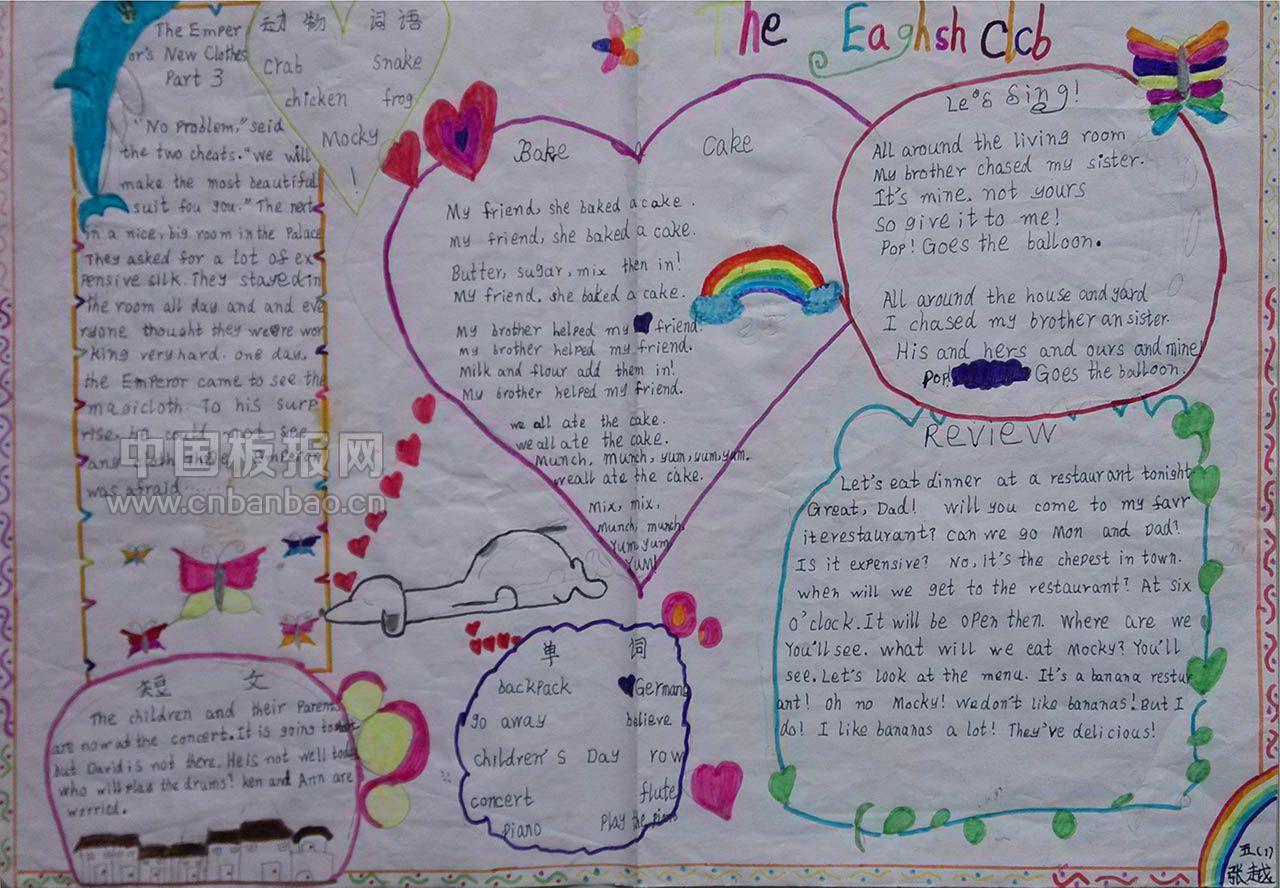 The Eaghsh clcb
The Emper
or's New Clothes
Part 3
"No Problem," seid
the two cheats. "we will
make the most beautiful
suit fou you." The next
in a nice, big room in the Palace
They asked for a lot of ex
Pensive silk. They stayed in
the room all day and and eve
ryone thought they weere wor
king very hard. one day,
the Emperor came to see the
magicloth. To his surp
rise, he could not see
any
was afraid......
动物 词语
crab snake
chicken frog
Mocky
!
Bake a Cake
My friend, she baked a cake.
My friend, she baked a cake.
Butter, sugar, mix then in!
My friend, she baked a cake.
My brother helped my friend.
My brother helped my friend.
Milk and flour add them in!
My brother helped my friend.
we all ate the cake.
we all ate the cake.
Munch, munch, yum, yum, yum.
we all ate the cake.
Mix, mix,
Munch, munch,
Yum, yum
YUM!
Le's Sing!
All around the living room
My brother chased my sister.
It's mine, not yours
So give it to me!
Pop! Goes the balloon.
All around the house and yard
I chased my brother an sister.
His and hers and ours and mine
Pop! Goes the balloon.
Review
Let's eat dinner at a restaurant tonight.
Great, Dad! will you come to my favr
iterestaurant? can we go Mon and Dad?
IS it expensive? No, it's the chepest in town.
when will we get to the restaurant? At six
o'clock. It will be open then. Where are we
You'll see. what will we eat Mocky? You'll
see. Let's look at the menu. It's a banana restur
ant! oh no Mocky! We don't like bananas! But I
do! I like bananas a lot! They've delicious!
短文
The children and their Parents
are now at the concert. It is going to
but David is not there. He is not well today
who will play the drums? ken and Ann are
worried.
单词
backpack Germany
go away believe
children's Day row
concert flute
piano play the piano
五(1)
张越
中国板报网
www.cnbanbao.cn